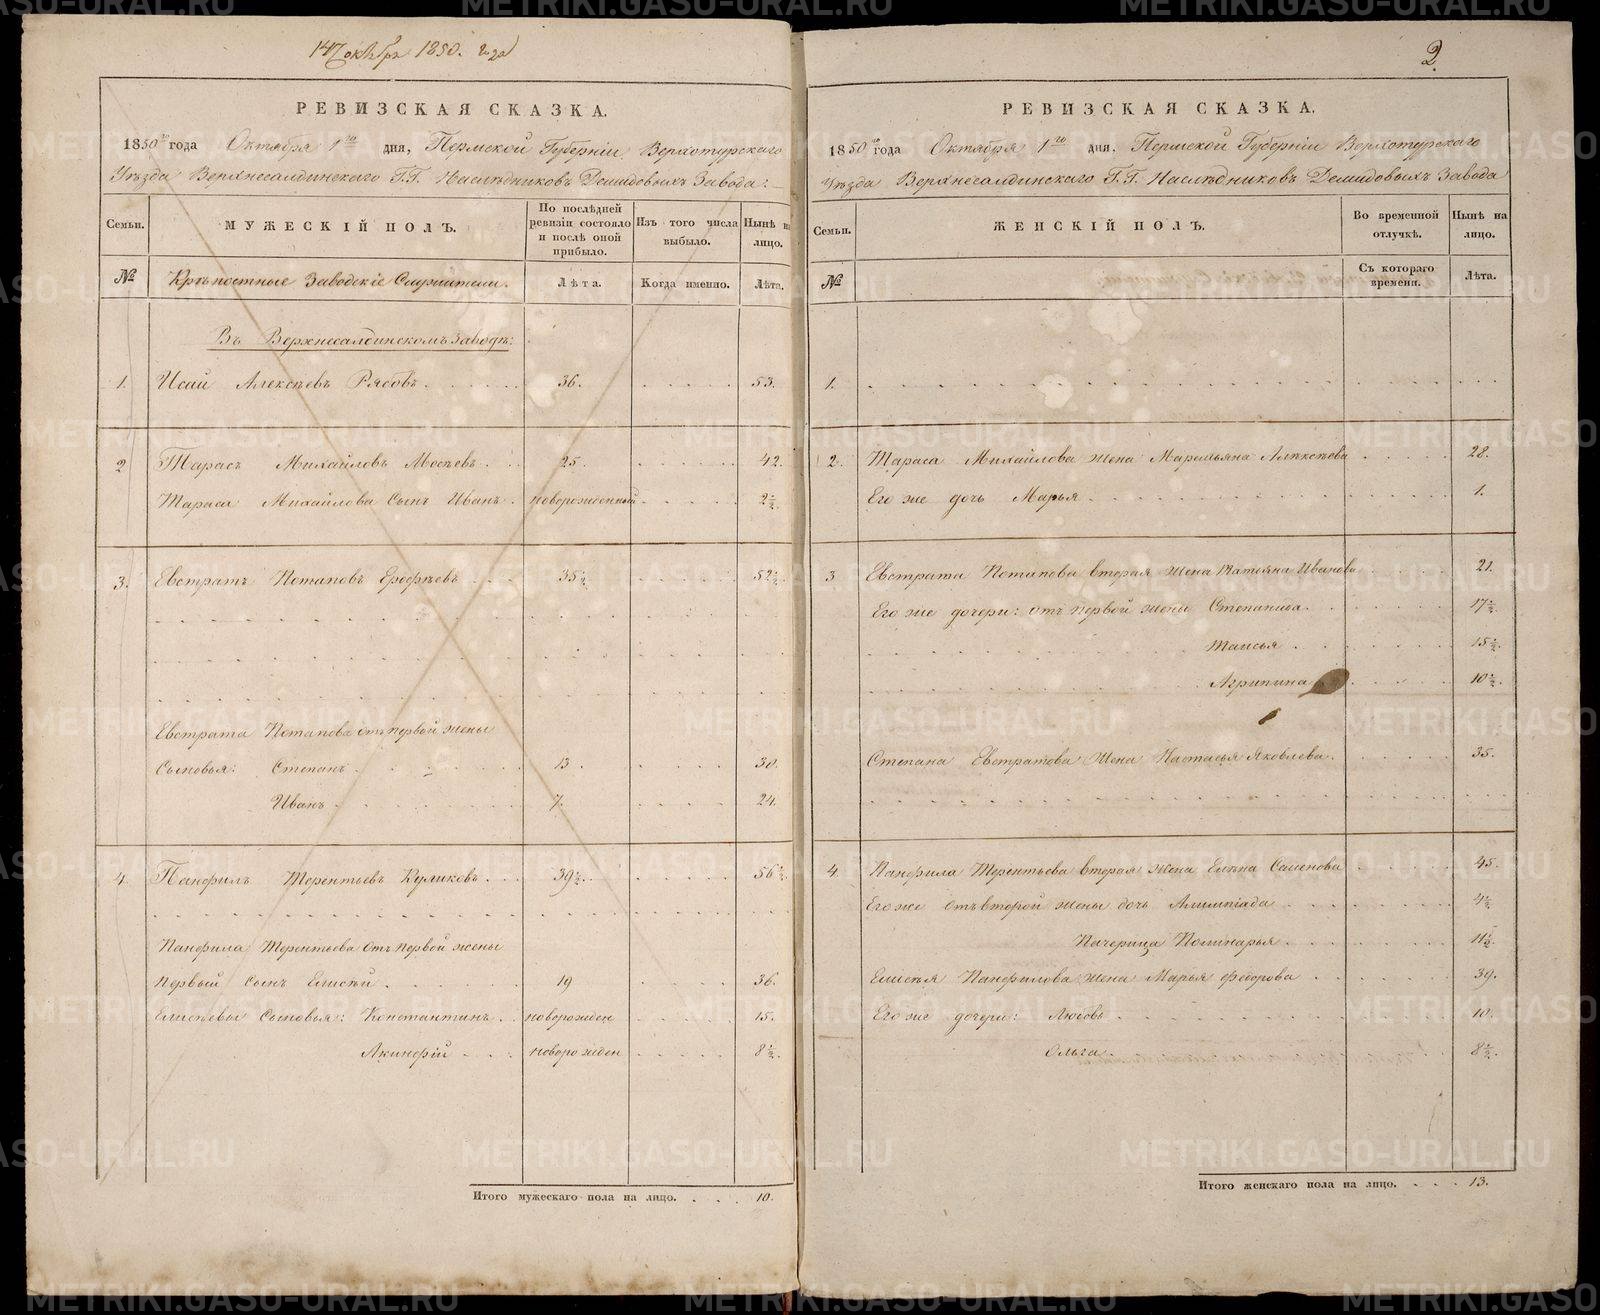 147 октбр 1850. года
РЕВИЗСКАЯ СКАЗКА.
1850го года Октября 1го дня, Пермской Губерніи Верхотурскаго
Уѣзда Верхнесалдинскаго Г.Г. Наслѣдниковъ Демидовыхъ Завода:
Семьи. МУЖЕСКІЙ ПОЛЪ. По послѣдней ревизіи состояло и послѣ оной прибыло. Изъ того числа выбыло. Нынѣ на лицо.
№ Крѣпостные Заводскіе Служители. Лѣта. Когда именно. Лѣта.
Въ Верхнесалдинскомъ Заводѣ:
1. Исай Алексѣевъ Рябовъ 36. 53.
2 Тарасъ Михайловъ Мосѣевъ 25. 42.
Тараса Михайлова Сынъ Иванъ новорожденный 2½.
3. Евстратъ Потаповъ Ерофѣевъ 35½ 52½.
Евстрата Потапова отъ первой жены
Сыновья: Степанъ 13. 30.
Иванъ 7. 24.
4. Панфилъ Терентьевъ Куликовъ 39½. 56½.
Панфила Терентьева отъ первой жены
первый сынъ Елисѣй 19 36.
Елисѣевы Сыновья: Константинъ новорожден 15.
Акинфій новорожден 8½.
Итого мужескаго пола на лицо. 10.
2.
РЕВИЗСКАЯ СКАЗКА.
1850го года Октября 1го дня, Пермской Губерніи Верхотурскаго
Уѣзда Верхнесалдинскаго Г.Г. Наслѣдниковъ Демидовыхъ Завода
Семьи. ЖЕНСКІЙ ПОЛЪ. Во временной отлучкѣ. Нынѣ на лицо.
№ Съ котораго времени. Лѣта.
1.
2. Тараса Михайлова жена Маремьяна Алексѣева 28.
Его же дочь Марья 1.
3 Евстрата Потапова вторая жена Татьяна Иванова 21.
Его же дочери: отъ первой жены Степанида 17½.
Таисья 15½.
Агрипина 10½.
Степана Евстратова Жена Настасья Яковлева 35.
4. Панфила Терентьева вторая жена Елѣна Семенова 45.
Его же отъ второй жены дочь Алимпіада 4½.
Пачерица Полинарья 11½.
Елисѣя Панфилова жена Марья Федорова 39.
Его же дочери: Любовь 10.
Ольга 8½.
Итого женскаго пола на лицо. 13.
METRIKI.GASO-URAL.RU